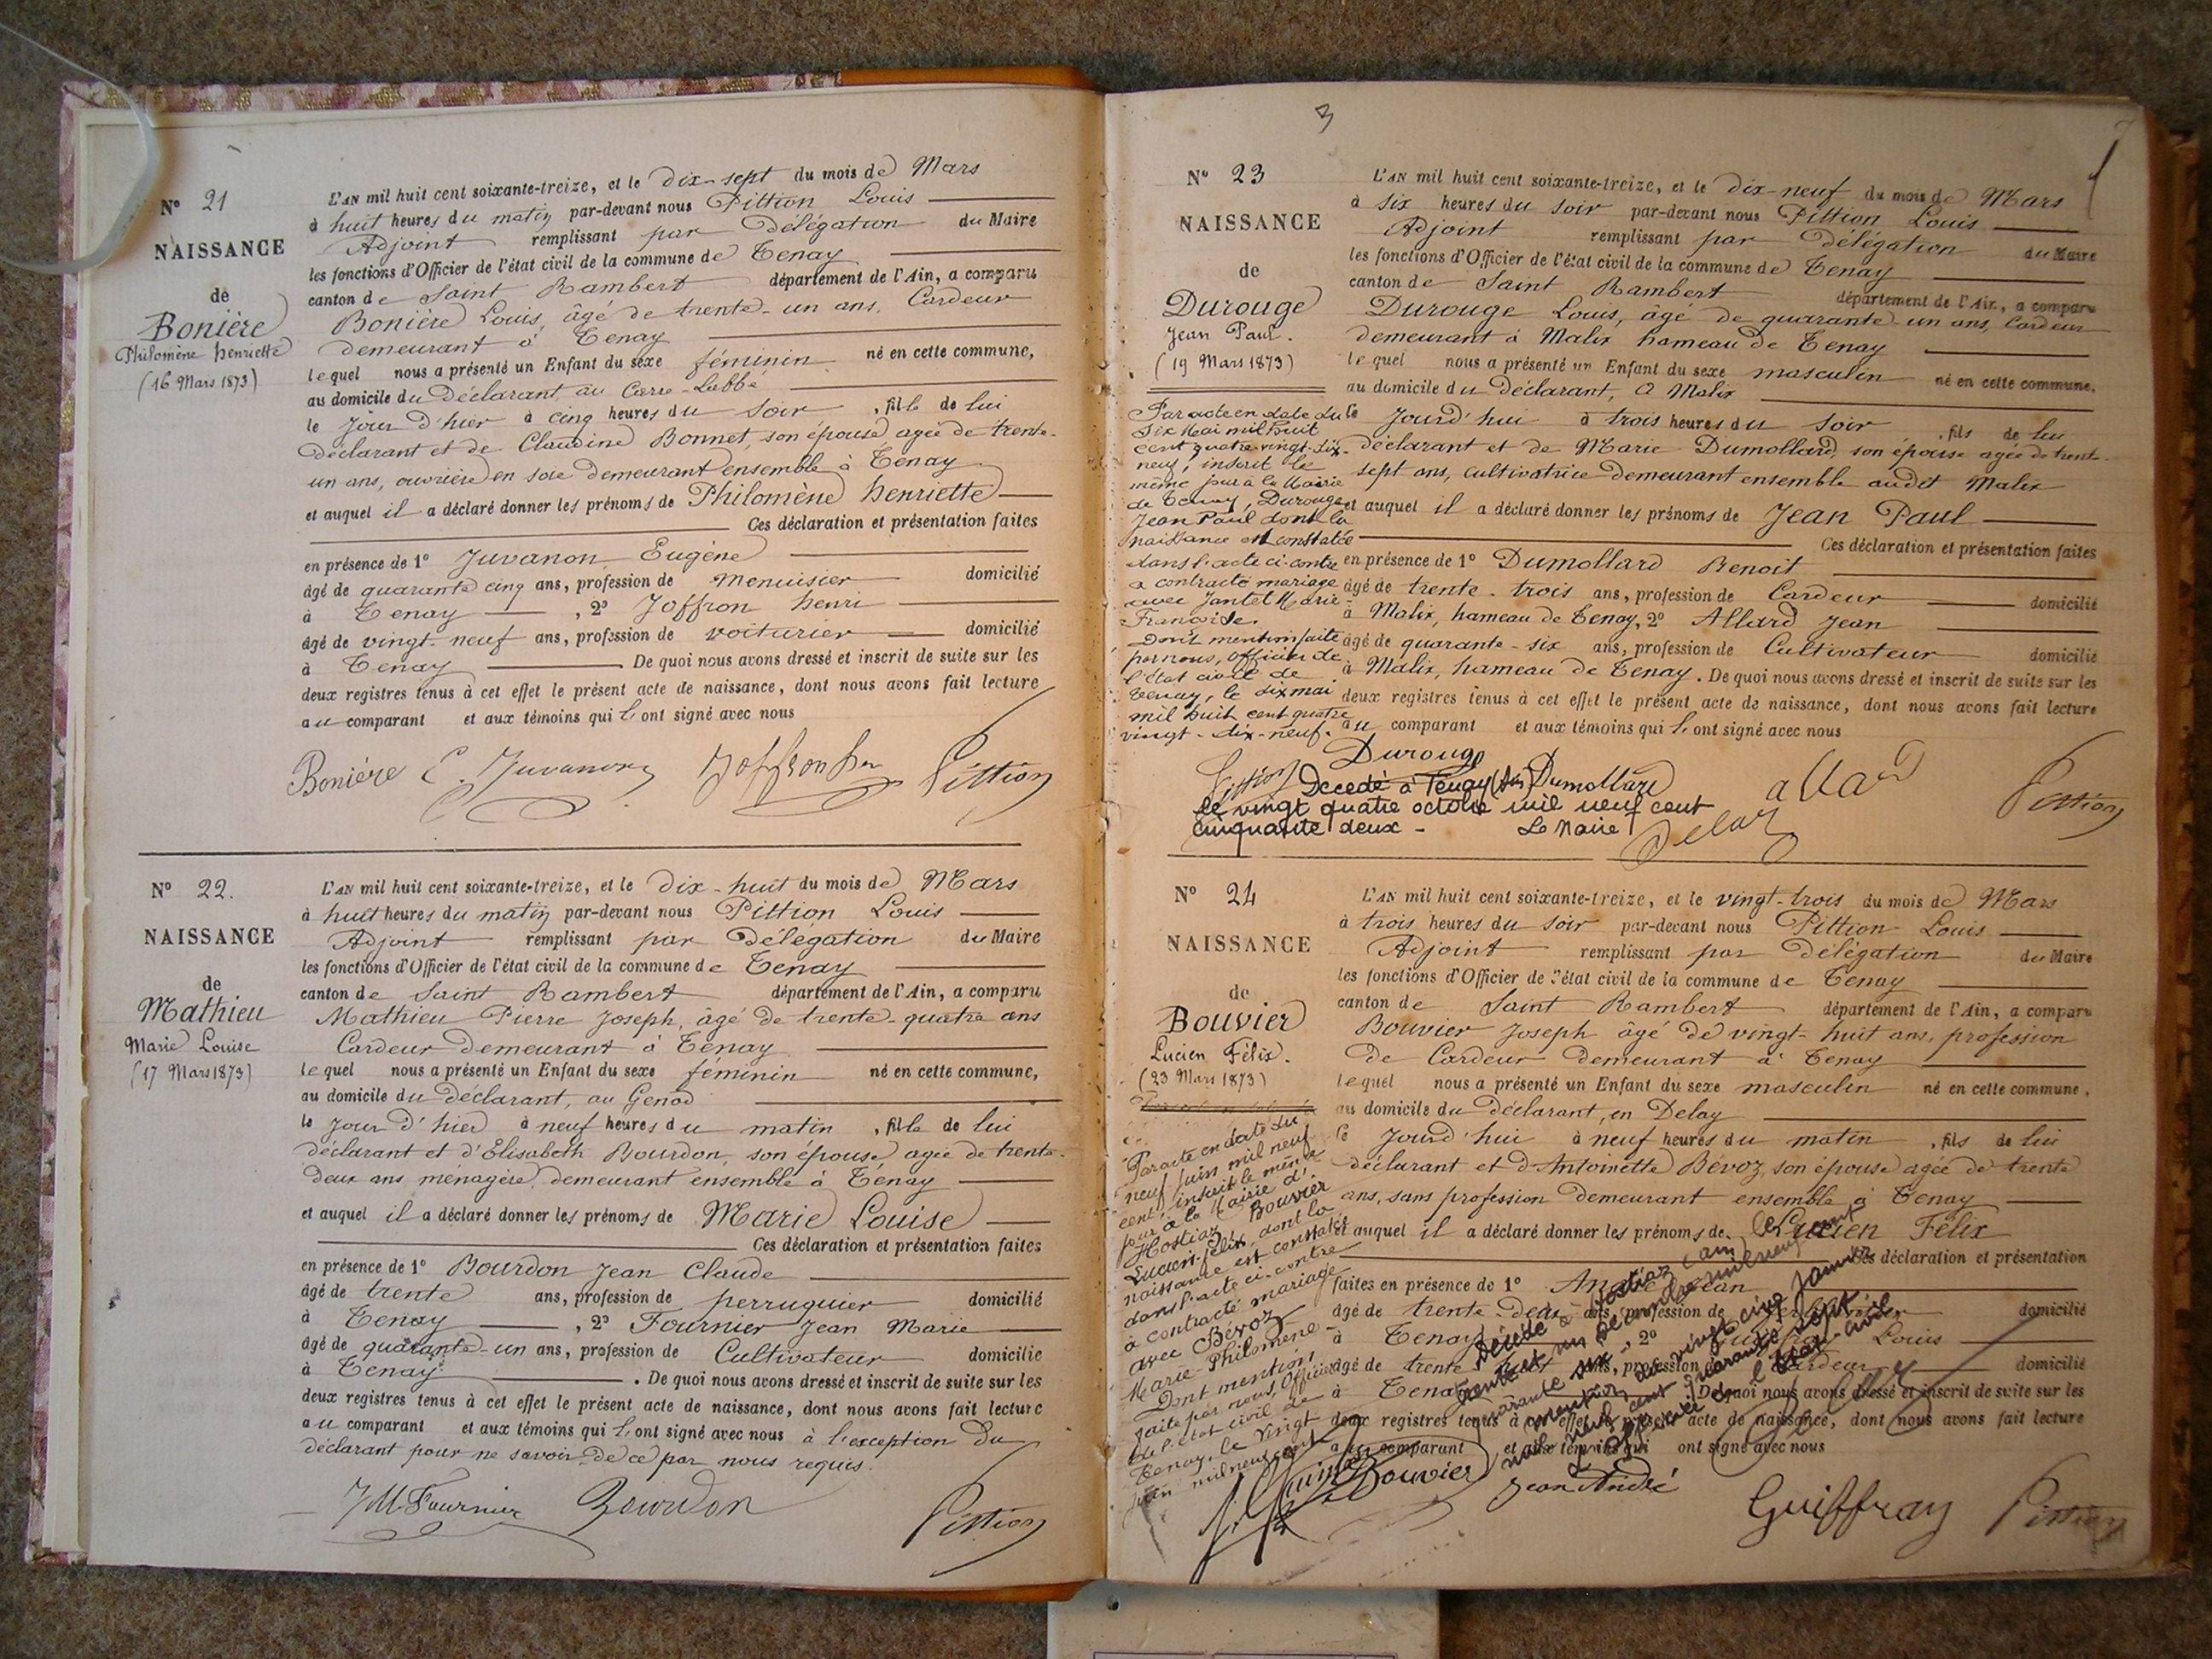 N° 21
NAISSANCE
de
Bonière
Philomène henriette
(16 Mars 1873)
L'AN mil huit cent soixante-treize, et le dix-sept du mois de Mars
à huit heures du matin par-devant nous Pittion Louis
Adjoint remplissant par Délégation du Maire
les fonctions d'Officier de l'état civil de la commune de Tenay
canton de Saint Rambert département de l'Ain, a comparu
Bonière Louis, âgé de trente-un ans, Cardeur
demeurant à Tenay
lequel nous a présenté un Enfant du sexe féminin né en cette commune,
au domicile du Déclarant, au
le Jour d'hier à cinq heures du soir, fille de lui
Déclarant et de Claudine Bonnet, son épouse agée de trente-
un ans, ouvrière en soie demeurant ensemble à Tenay
et auquel il a déclaré donner les prénoms de Philomène henriette
Ces déclaration et présentation faites
en présence de 1° Juvanon Eugène
âgé de quarante cinq ans, profession de menuisier domicilié
à Tenay, 2° Joffron henri
âgé de vingt-neuf ans, profession de voiturier domicilié
à Tenay De quoi nous avons dressé et inscrit de suite sur les
deux registres tenus à cet effet le présent acte de naissance, dont nous avons fait lecture
au comparant et aux témoins qui l'ont signé avec nous
Bonière E. Juvanon Joffron hri Pittion
N° 22.
NAISSANCE
de
Mathieu
Marie Louise
(17 Mars 1873)
L'AN mil huit cent soixante-treize, et le dix-huit du mois de Mars
à huit heures du matin par-devant nous Pittion Louis
Adjoint remplissant par Délégation du Maire
les fonctions d'Officier de l'état civil de la commune de Tenay
canton de Saint Rambert département de l'Ain, a comparu
Mathieu Pierre Joseph, âgé de trente-quatre ans
Cardeur demeurant à Tenay
lequel nous a présenté un Enfant du sexe féminin né en cette commune,
au domicile du déclarant, au Genod
le jour d'hier à neuf heures du matin, fille de lui
déclarant et d'Elisabeth Bourdon, son épouse agée de trente-
deux ans ménagère demeurant ensemble à Tenay
et auquel il a déclaré donner les prénoms de Marie Louise
Ces déclaration et présentation faites
en présence de 1° Bourdon Jean Claude
âgé de trente ans, profession de perruquier domicilié
à Tenay, 2° Fournier Jean Marie
âgé de quarante-un ans, profession de Cultivateur domicilié
à Tenay. De quoi nous avons dressé et inscrit de suite sur les
deux registres tenus à cet effet le présent acte de naissance, dont nous avons fait lecture
au comparant et aux témoins qui l'ont signé avec nous à l'exception du
déclarant pour ne savoir de ce par nous requis.
JM Fournier Bourdon Pittion
3
N° 23
NAISSANCE
de
Durouge
Jean Paul.
(19 Mars 1873)
Par acte en date du
six Mai mil huit
cent quatre-vingt-dix-
neuf, inscrit le
même jour à la Mairie
de Tenay, Durouge
Jean Paul dont la
naissance est constatée
dans l'acte ci-contre
a contracté mariage
avec Jantet Marie
Françoise.
Dont mention faite
par nous, Officier de
l'état civil de
Tenay, le six mai
mil huit cent quatre
vingt-dix-neuf.
Pittion
L'AN mil huit cent soixante-treize, et le dix-neuf du mois de Mars
à six heures du soir par-devant nous Pittion Louis
Adjoint remplissant par Délégation du Maire
les fonctions d'Officier de l'état civil de la commune de Tenay
canton de Saint Rambert département de l'Ain, a comparu
Durouge Louis, âgé de quarante-un ans, Cardeur
demeurant à Malix hameau de Tenay
lequel nous a présenté un Enfant du sexe masculin né en cette commune.
au domicile du Déclarant, à Malix
le Jourd'hui à trois heures du soir, fils de lui
déclarant et de Marie Dumollard, son épouse agée de trente-
sept ans, cultivatrice demeurant ensemble audit Malix
et auquel il a déclaré donner les prénoms de Jean Paul
Ces déclaration et présentation faites
en présence de 1° Dumollard Benoit
âgé de trente-trois ans, profession de Cardeur domicilié
à Malix, hameau de Tenay, 2° Allard Jean
âgé de quarante-six ans, profession de Cultivateur domicilié
à Malix, hameau de Tenay. De quoi nous avons dressé et inscrit de suite sur les
deux registres tenus à cet effet le présent acte de naissance, dont nous avons fait lecture
au comparant et aux témoins qui l'ont signé avec nous
Durouge Dumollard allard Pittion
Decedé à Tenay (Ain)
le vingt quatre octobre mil neuf cent
cinquante deux - Le Maire
N° 24
NAISSANCE
de
Bouvier
Lucien Félix.
(23 Mars 1873)
Par acte en date du
neuf juin mil neuf
cent, inscrit le même
jour à la Mairie d'
Hostiaz, Bouvier
Lucien-Félix, dont la
naissance est constatée
dans l'acte ci-contre
à contracté mariage
avec Bévoz
Marie-Philomène-
Dont mention
faite par nous, Officier
de l'état civil de
Tenay, le vingt
juin mil neuf cent
L'AN mil huit cent soixante-treize, et le vingt-trois du mois de Mars
à trois heures du soir par-devant nous Pittion Louis
Adjoint remplissant par Délégation du Maire
les fonctions d'Officier de l'état civil de la commune de Tenay
canton de Saint Rambert département de l'Ain, a comparu
Bouvier Joseph âgé de vingt-huit ans, profession
de Cardeur demeurant à Tenay
lequel nous a présenté un Enfant du sexe masculin né en cette commune,
au domicile du Déclarant, en Delay
le Jourd'hui à neuf heures du matin, fils de lui
déclarant et d'Antoinette Bévoz, son épouse agée de trente
ans, sans profession demeurant ensemble à Tenay
et auquel il a déclaré donner les prénoms de Lucien Félix
Ces déclaration et présentation
faites en présence de 1° André Jean
âgé de trente-deux ans, profession de domicilié
à Tenay, 2° Guiffray Louis
âgé de trente ans, profession de Cardeur domicilié
à Tenay. De quoi nous avons dressé et inscrit de suite sur les
deux registres tenus à cet effet le présent acte de naissance, dont nous avons fait lecture
au comparant et aux témoins qui ont signé avec nous
Bouvier Jean André Guiffray Pittion
Décédé à Hostiaz (Ain) le
trente et un Décembre mil neuf cent
quarante six - 
mention du vingt cinq janvier
mil neuf cent quarante sept
l'officier de l'état-civil